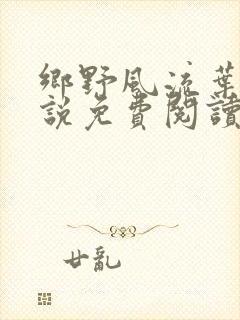 鄉野風流葉
說免費閱讀
廿亂